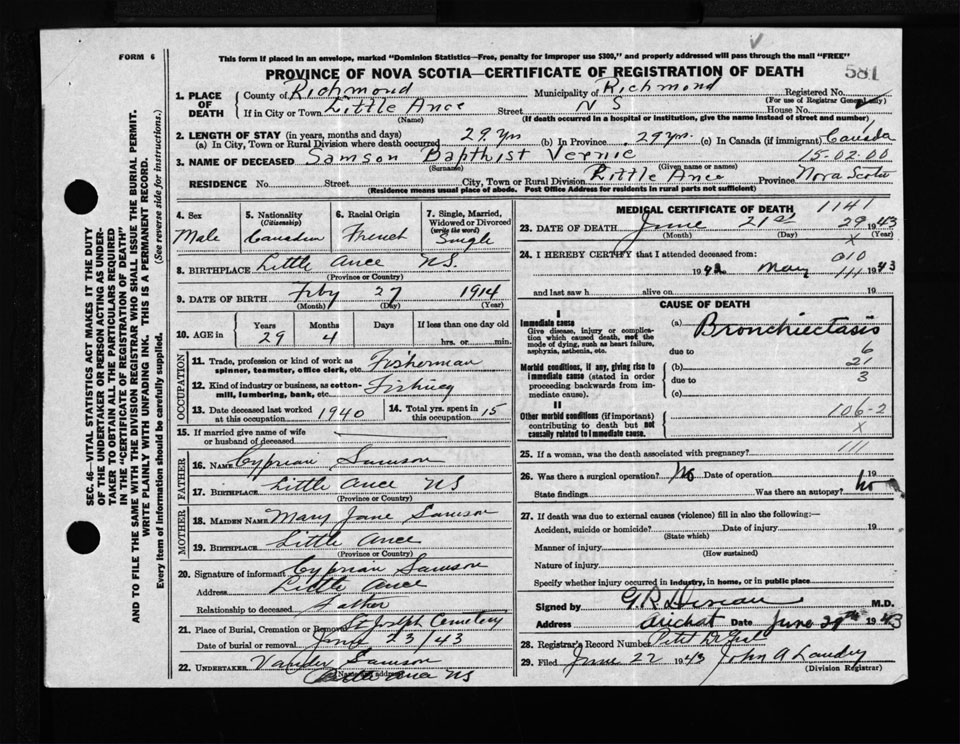 FORM 6
This form if placed in an envelope, marked "Dominion Statistics—Free, penalty for improper use $300," and properly addressed will pass through the mail "FREE"
PROVINCE OF NOVA SCOTIA—CERTIFICATE OF REGISTRATION OF DEATH
581
SEC. 46—VITAL STATISTICS ACT MAKES IT THE DUTY
OF THE UNDERTAKER OR PERSON ACTING AS UNDER-
TAKER TO OBTAIN ALL THE PARTICULARS REQUIRED
IN THE "CERTIFICATE OF REGISTRATION OF DEATH"
AND TO FILE THE SAME WITH THE DIVISION REGISTRAR WHO SHALL ISSUE THE BURIAL PERMIT.
WRITE PLAINLY WITH UNFADING INK. THIS IS A PERMANENT RECORD.
Every item of information should be carefully supplied. (See reverse side for instructions.)
1. PLACE OF DEATH
County of Richmond Municipality of Richmond Registered No.
(For use of Registrar General only)
If in City or Town Little Ance Street N S House No.
(Name) (If death occurred in a hospital or institution, give the name instead of street and number)
2. LENGTH OF STAY (in years, months and days)
(a) In City, Town or Rural Division where death occurred 29 yrs (b) In Province 29 yrs. (c) In Canada (if immigrant) Canada
3. NAME OF DECEASED Samson Bapthist Vernie 15-02-00
(Surname) (Given name or names)
RESIDENCE No. Street City, Town or Rural Division Little Ance Province Nova Scotia
(Residence means usual place of abode. Post Office Address for residents in rural parts not sufficient)
4. Sex Male
5. Nationality (Citizenship) Canadian
6. Racial Origin French
7. Single, Married, Widowed or Divorced (write the word) Single
8. BIRTHPLACE Little Ance NS.
(Province or Country)
9. DATE OF BIRTH Feby 27 1914
(Month) (Day) (Year)
10. AGE in Years 29 Months 4 Days If less than one day old hrs. or min.
OCCUPATION
11. Trade, profession or kind of work as spinner, teamster, office clerk, etc. Fisherman
12. Kind of industry or business, as cotton-mill, lumbering, bank, etc. Fishing
13. Date deceased last worked at this occupation 1940
14. Total yrs. spent in this occupation 15
15. If married give name of wife or husband of deceased
FATHER
16. NAME Cyprian Samson
17. BIRTHPLACE Little Ance NS
(Province or Country)
MOTHER
18. MAIDEN NAME Mary Jane Samson
19. BIRTHPLACE Little Ance
(Province or Country)
20. Signature of informant Cyprian Samson
Address Little Ance
Relationship to deceased Father
21. Place of Burial, Cremation or Removal St Joseph Cemetery
Date of burial or removal June 23/43
22. UNDERTAKER Samson
(Name and address) Little Ance NS
MEDICAL CERTIFICATE OF DEATH 1141
23. DATE OF DEATH June 21st 29 1943
(Month) (Day) (Year)
x
24. I HEREBY CERTIFY that I attended deceased from: 010
1942 May 111 1943
and last saw h alive on 19
CAUSE OF DEATH
I
Immediate cause
Give disease, injury or complication which caused death, not the mode of dying, such as heart failure, asphyxia, asthenia, etc.
(a) Bronchiectasis
due to 6
Morbid conditions, if any, giving rise to immediate cause (stated in order proceeding backwards from immediate cause).
(b) 21
due to 3
(c)
II
Other morbid conditions (if important) contributing to death but not causally related to immediate cause.
106-2
x
25. If a woman, was the death associated with pregnancy? 111
26. Was there a surgical operation? No Date of operation 19
State findings Was there an autopsy? no
27. If death was due to external causes (violence) fill in also the following:—
Accident, suicide or homicide? Date of injury 19
(State which)
Manner of injury
(How sustained)
Nature of injury
Specify whether injury occurred in industry, in home, or in public place
Signed by G.R. M.D.
Address Arichat Date June 29th 1943
28. Registrar's Record Number Petit De Grat
29. Filed June 22 1943 John A Landry
(Division Registrar)